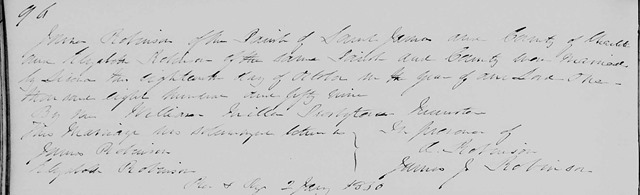 96
James Robinson of the Parish of Saint James and County of Charlotte
and Elizabeth Robinson of the same Parish and County were married
by License this eighteenth day of October in the year of our Lord One
thousand eight hundred and fifty nine
By me William Millen Presbyterian Minister
This Marriage was solemnized between
In presence of
James Robinson
Robinson
Elizabeth Robinson
James J. Robinson
Reg 2 Jany